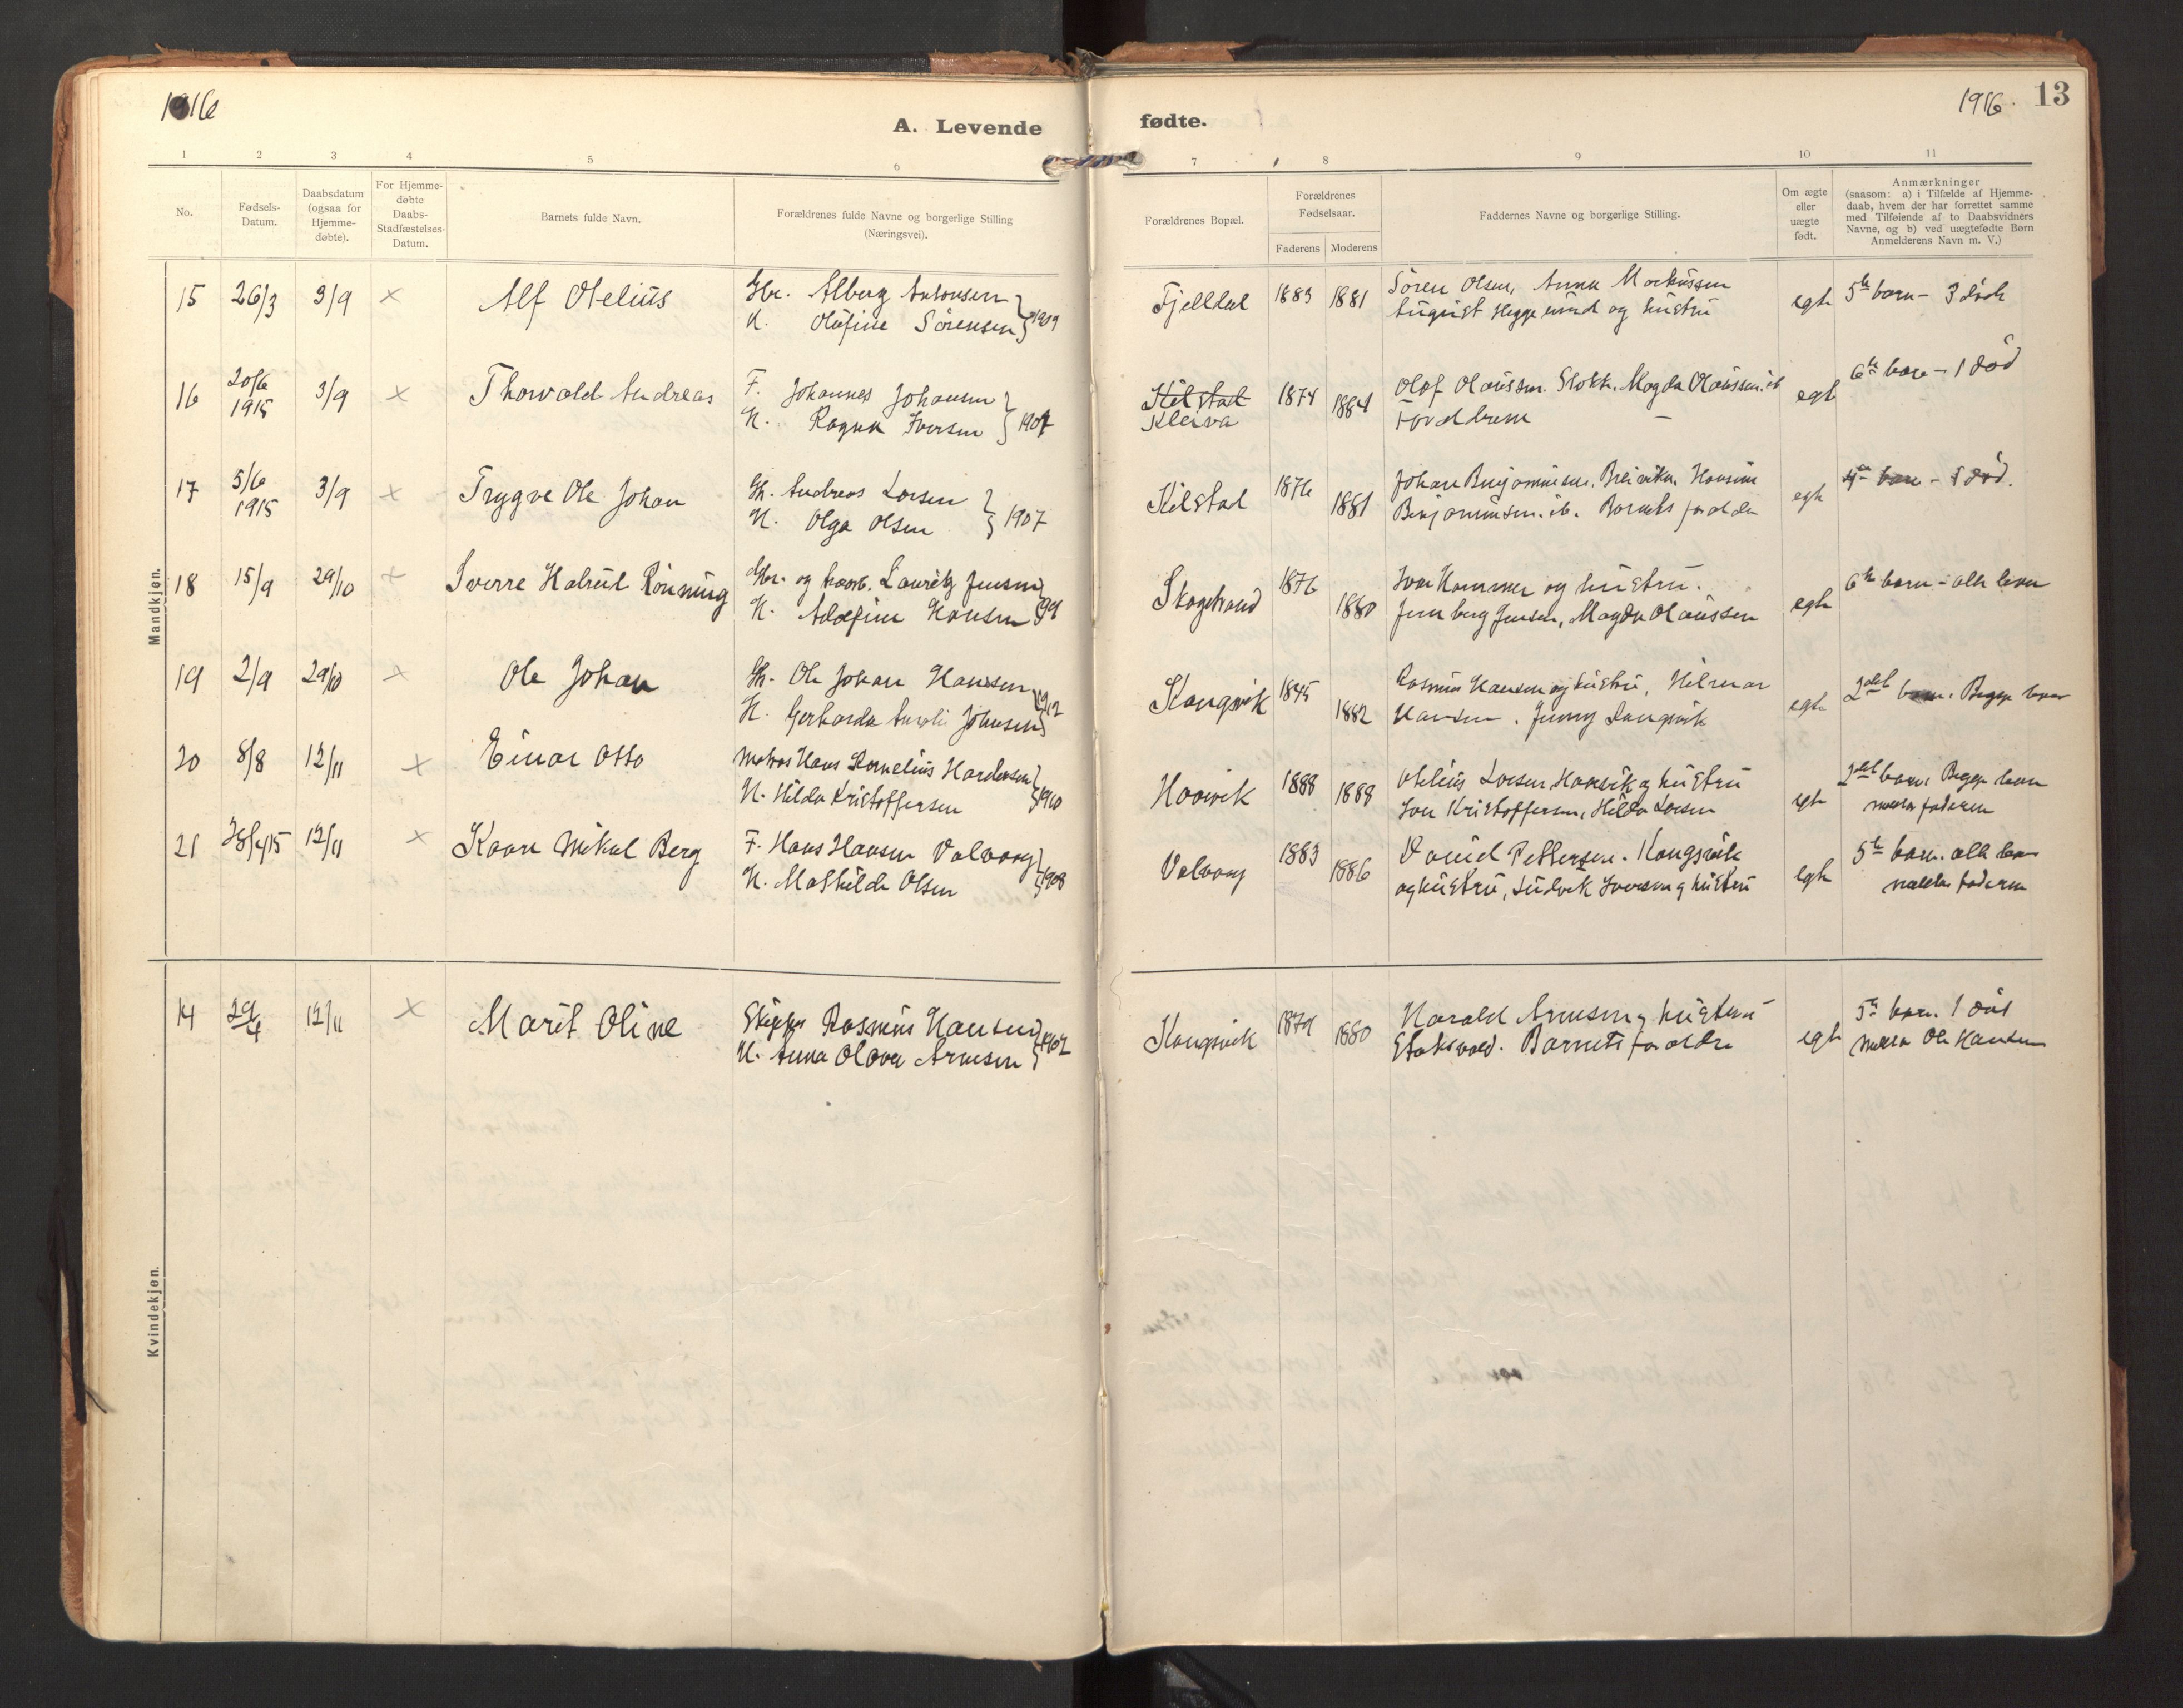 1916
A. Levende
fødte.
1916. 13
1 2 3 4 5 6 7 8 9 10 11
No.
Fødsels-
Datum.
Daabsdatum
(ogsaa for
Hjemme-
døbte).
For Hjemme-
døbte
Daabs-
Stadfæstelses-
Datum.
Barnets fulde Navn.
Forældrenes fulde Navne og borgerlige Stilling
(Næringsvei).
Forældrenes Bopæl.
Forældrenes
Fødselsaar.
Faderens Moderens
Faddernes Navne og borgerlige Stilling.
Om ægte
eller
uægte
født.
Anmærkninger
(saasom: a) i Tilfælde af Hjemme-
daab, hvem der har forrettet samme
med Tilføiende af to Daabsvidners
Navne, og b) ved uægtefødte Børn
Anmelderens Navn m. V.)
Mandkjøn.
15 26/3 3/9 x Alf Otelius Gbr. Alberg Antonsen
H. Olufine Sørensen } 1909
Fjelldal 1883 1881 Søren Olsen, Anna Markussen
August Heggelund og hustru
egte 5te barn - 3 døde
16 20/6
1915 3/9 x Thorvald Andreas F. Johannes Johansen
H. Ragna Iversen } 1907
Kilstad
Kleiva 1874 1884 Olaf Olaussen. Stokk. Magda Olaussen. ib
Foreldrene
egte 6te barn - 1 død
17 5/6
1915 3/9 x Trygve Ole Johan Gb. Andreas Larsen
H. Olga Olsen } 1907
Kilstad 1876 1881 Johan Benjaminsen, Breivikn. Hansine
Benjaminsen. ib. Barnets foreldre
egte 4de barn - 1 død.
18 15/9 29/10 x Sverre Halvul Rønning Gbr. og Lauritz Jensen
H. Adolfine Hansen
Skogstrand 1876 1880 Ivar Hammer og hustru.
Jensen, Magda Olaussen
egte 6te barn - alle lever
19 2/9 29/10 x Ole Johan Gb. Ole Johan Hansen
H. Gerharda Johnsen } 1912
Kongsvik 1845 1882 Rasmus Hansen og hustru, Hilmar
Hansen. Jenny Langvik
egte 2det barn. Begge lever
20 8/8 12/11 x Einar Otto Matros Hans Kornelius Hardensen
H. Hilda Kristoffersen } 1910
Haavik 1888 1888 Otelius Larsen Haavik og hustru
Kristoffersen, Hilda Larsen
egte 2det barn. Begge lever
faderen
21 12/11 x Kaare Mikal Berg F. Hans Hansen Valvaag
H. Mathilde Olsen } 1908
Valvaag 1883 1886 Daniel Pettersen. Kongsvik
og hustru, Ludvik Iversen og hustru
egte 5te barn. alle lever
faderen
Kvindekjøn.
14 29/4 12/11 x Marit Oline Skipper Rasmus Hansen
H. Anna Olava Arnesen } 1902
Kongsvik 1879 1880 Harald Arnesen og hustru
Staksvold. Barnets foreldre
egte 5te barn. 1 død
Ole Hansen